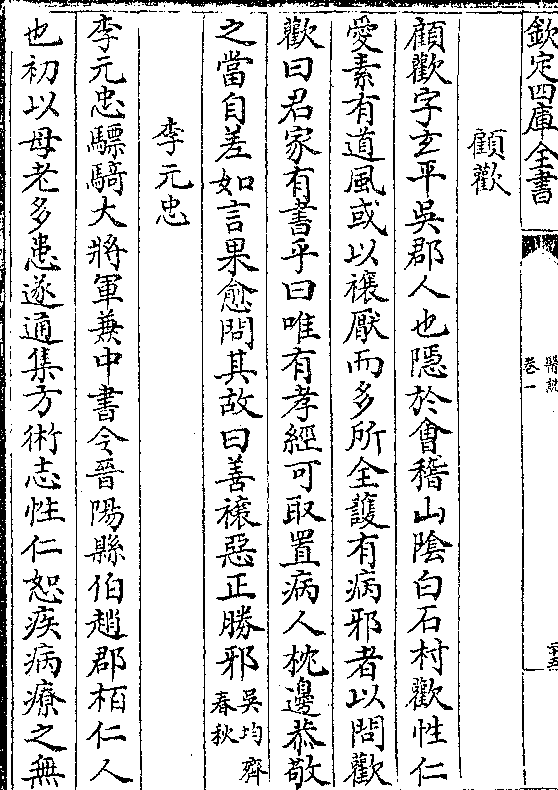 欽定四庫全書
醫說
卷一
顧歡
顧歡字玄平吳郡人也隱於會稽山陰白石村歡性仁
愛素有道風或以禳厭而多所全護有病邪者以問歡
歡曰君家有書乎曰唯有孝經可取置病人枕邊恭敬
之當自差如言果愈問其故曰善禳惡正勝邪吳均齊春秋
李元忠
李元忠驃騎大將軍兼中書令晉陽縣伯趙郡柏仁人
也初以母老多患遂通集方術志性仁恕疾病療之無